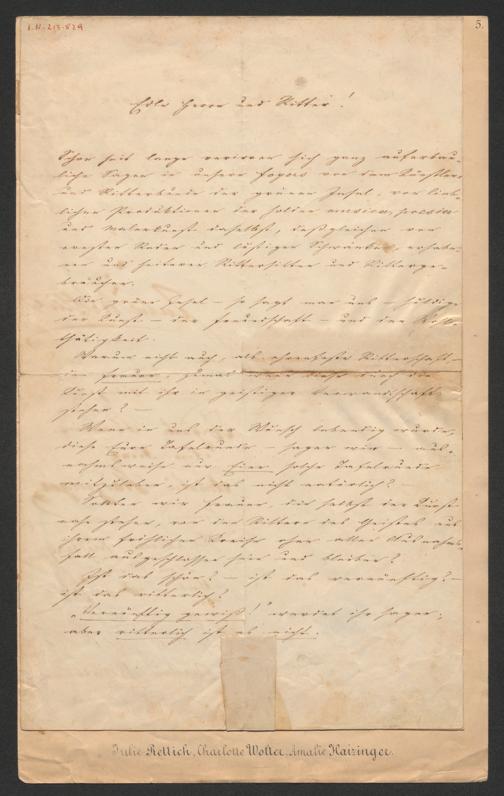 I.N. 213.829
5.
Edle Herrn und Ritter!
Schon seit lange verirren sich ganz auferbau-
liche Sagen in unsere foyers von dem Künstler-
und Ritterbunde der grünen Insel, von lieb-
lichen Produktionen der holden musica, poesia
und Malerkunst daselbst, deßgleichen von
ernsten Reden und lustigen Schwänken, erhabe-
nen und heiterer Rittersitten und Rittерge-
bräuchen.
Die grüne Insel – so sagt man uns – huldige
der Kunst – der Freundschaft – und der Wohl-
thätigkeit.
Warum nicht auch, als ehrenfeste Ritterschaft –
den Frauen, zumal wenn diese durch die
Kunst mit ihr in geistiger Verwandtschaft
stehen? –
Wenn in uns der Wunsch lebendig wurde,
diese Eure Tafelrunde – sagen wir – aus-
nahmsweise nur Einer solche Tafelrunde
mitzuleben, ist das nicht natürlich? –
Sollten wir Frauen, die selbst der Kunst
nahe stehen, von den Rittern des Geistes aus
ihrem fröhlichen Bereiche ohne allen Ausnahms-
fall ausgeschlossen sein und bleiben?
Ist das schön? – ist das vernünftig? –
ist das ritterlich?
„Vernünftig gewiß!" werdet ihr sagen,
aber ritterlich ist es nicht.
Julie Rettich, Charlotte Wolter, Amalie Haizinger.